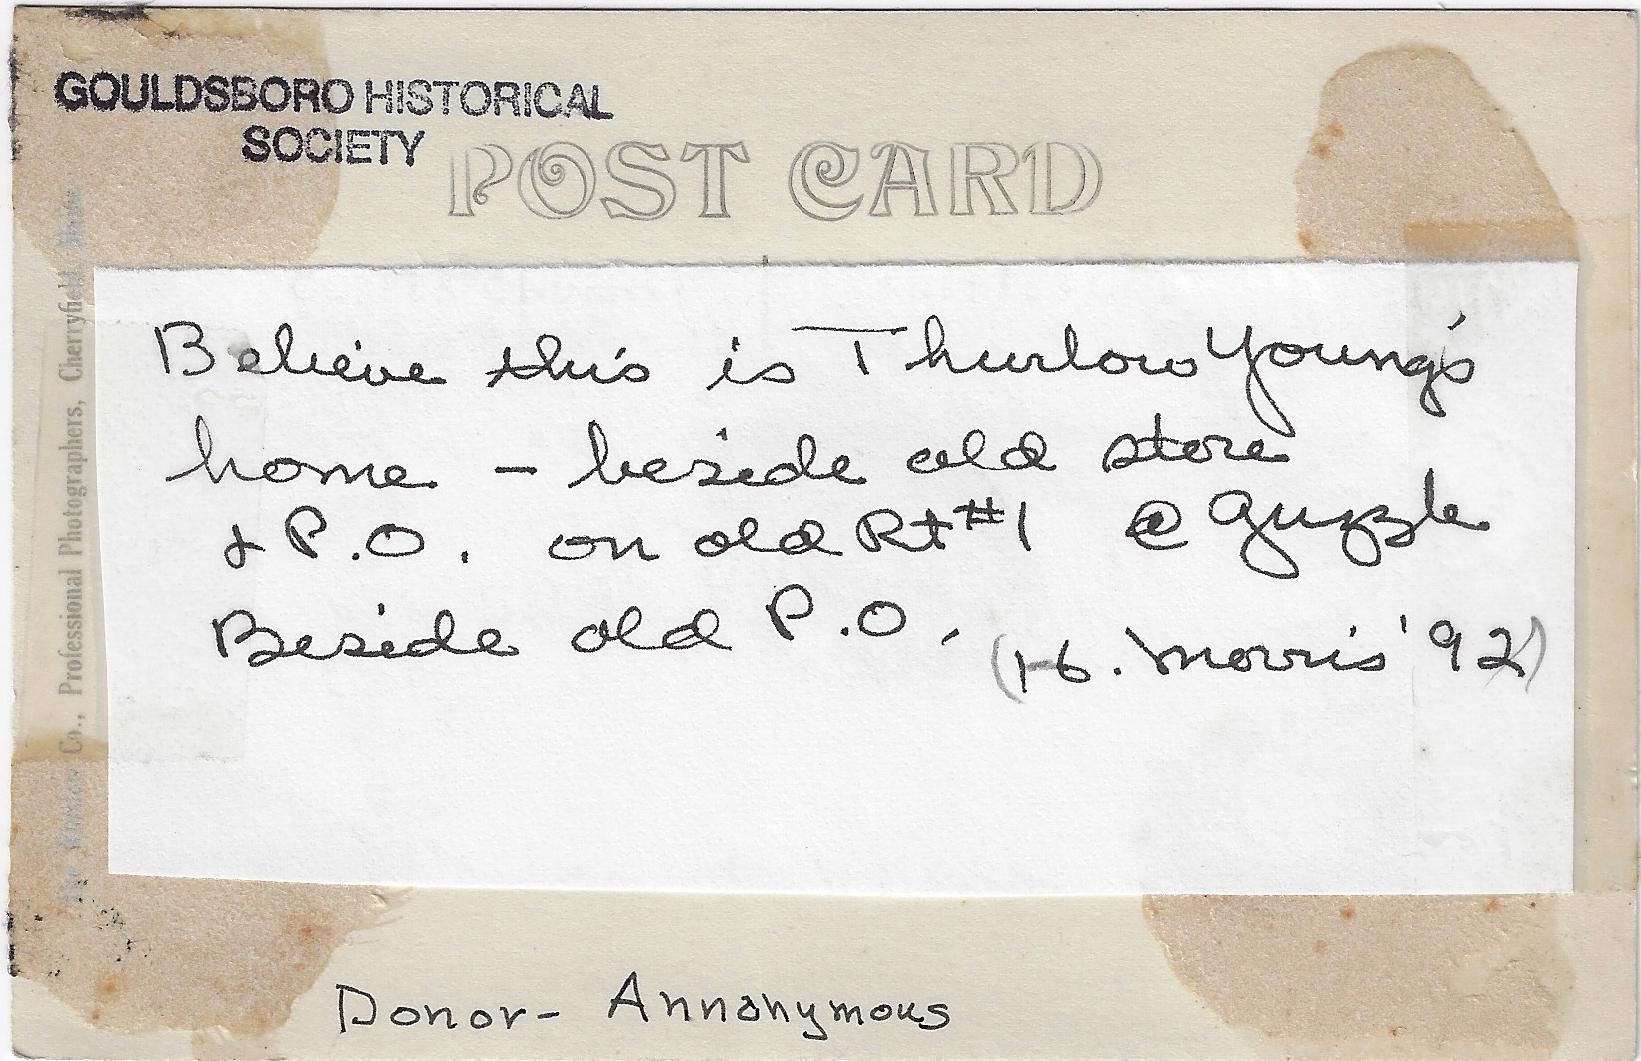 GOULDSBORO HISTORICAL
SOCIETY
POST CARD
Believe this is Thurlow Young's
home - beside old store
& P.O. on old Rt #1 @ Guzzle
Beside old P.O. (H. Morris '92)
Co., Professional Photographers, Cherryfield, Maine
Donor- Annonymous